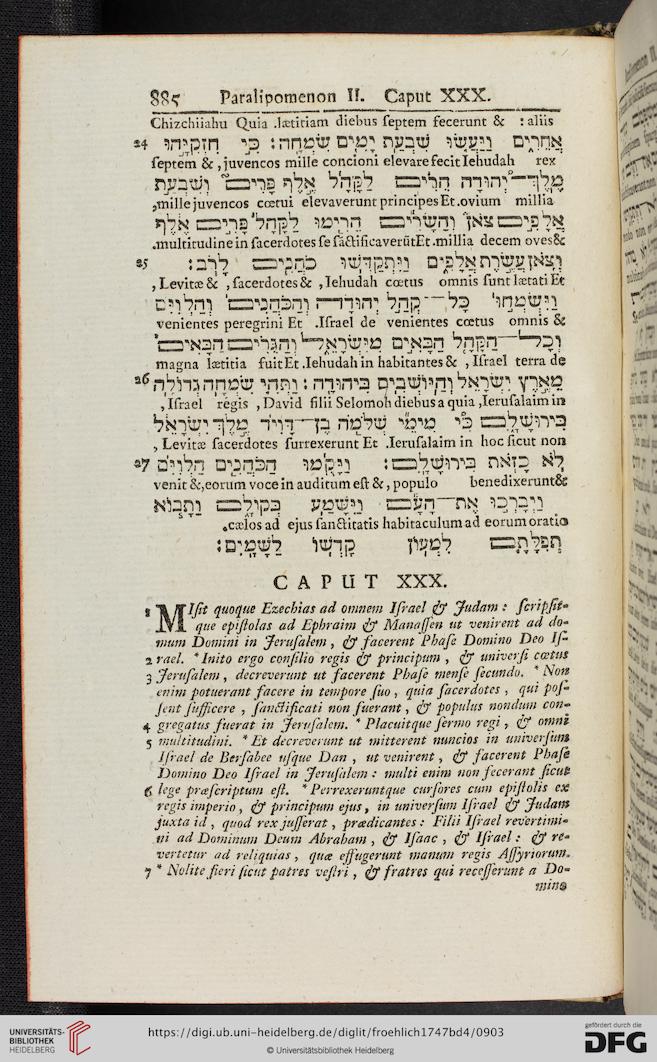 885 Paralipomenon II. Caput XXX.
Chizchiiahu Quia .lætitiam diebus septem fecerunt & : aliis
24 אֲחֵרִים וַיַּעֲשׂוּ שִׁבְעַת יָמִים שִׂמְחָה : כִּי חִזְקִיָּהוּ
septem & , juvencos mille concioni elevare fecit Iehudah rex
מֶלֶךְ יְהוּדָה הֵרִים לַקָּהָל אֶלֶף פָּרִים וְשִׁבְעַת
,mille juvencos cœtui elevaverunt principes Et .ovium millia
אֲלָפִים צֹאן וְהַשָּׂרִים הֵרִימוּ לַקָּהָל פָּרִים אֶלֶף
.multitudine in sacerdotes se sāctificaverūt Et .millia decem oves &
25 וְצֹאן עֲשֶׂרֶת אֲלָפִים וַיִּתְקַדְּשׁוּ כֹהֲנִים לָרֹב :
, Levitæ & , sacerdotes & , Iehudah cœtus omnis sunt lætati Et
וַיִּשְׂמְחוּ כָּל קְהַל יְהוּדָה וְהַכֹּהֲנִים וְהַלְוִיִּם
venientes peregrini Et .Israel de venientes cœtus omnis &
וְכָל הַקָּהָל הַבָּאִים מִיִּשְׂרָאֵל וְהַגֵּרִים הַבָּאִים
magna lætitia fuit Et .Iehudah in habitantes & , Israel terra de
26 מֵאֶרֶץ יִשְׂרָאֵל וְהַיּוֹשְׁבִים בִּיהוּדָה : וַתְּהִי שִׂמְחָה גְדוֹלָה
, Israel regis , David filii Selomoh diebus a quia ,Ierusalaim in
בִּירוּשָׁלָ͏ִם כִּי מִימֵי שְׁלֹמֹה בֶן דָּוִיד מֶלֶךְ יִשְׂרָאֵל
, Levitæ sacerdotes surrexerunt Et .Ierusalaim in hoc sicut non
27 לֹא כָזֹאת בִּירוּשָׁלָ͏ִם : וַיָּקֻמוּ הַכֹּהֲנִים הַלְוִיִּם
venit &,eorum voce in auditum est & , populo benedixerunt &
וַיְבָרְכוּ אֶת הָעָם וַיִּשָּׁמַע בְּקוֹלָם וַתָּבוֹא
.cælos ad ejus sanctitatis habitaculum ad eorum oratio
תְפִלָּתָם לִמְעוֹן קָדְשׁוֹ לַשָּׁמָיִם :
CAPUT XXX.
1 MIsit quoque Ezechias ad omnem Israel & Judam : scripsit-
que epistolas ad Ephraim & Manassen ut venirent ad do-
mum Domini in Jerusalem , & facerent Phase Domino Deo Is-
2 rael. * Inito ergo consilio regis & principum , & universi cœtus
3 Jerusalem , decreverunt ut facerent Phase mense secundo. * Non
enim potuerant facere in tempore suo , quia sacerdotes , qui pos-
sent sufficere , sanctificati non fuerant , & populus nondum con-
4 gregatus fuerat in Jerusalem. * Placuitque sermo regi , & omni
5 multitudini. * Et decreverunt ut mitterent nuncios in universum
Israel de Bersabee usque Dan , ut venirent , & facerent Phase
Domino Deo Israel in Jerusalem : multi enim non fecerant sicut
6 lege præscriptum est. * Perrexeruntque cursores cum epistolis ex
regis imperio , & principum ejus , in universum Israel & Judam
juxta id , quod rex jusserat , prædicantes : Filii Israel revertimi-
ni ad Dominum Deum Abraham , & Isaac , & Israel : & re-
vertetur ad reliquias , quæ effugerunt manum regis Assyriorum.
7 * Nolite fieri sicut patres vestri , & fratres qui recesserunt a Do-
mino
UNIVERSITÄTS-
BIBLIOTHEK
HEIDELBERG
https://digi.ub.uni-heidelberg.de/diglit/froehlich1747bd4/0903
© Universitätsbibliothek Heidelberg
gefördert durch die
DFG